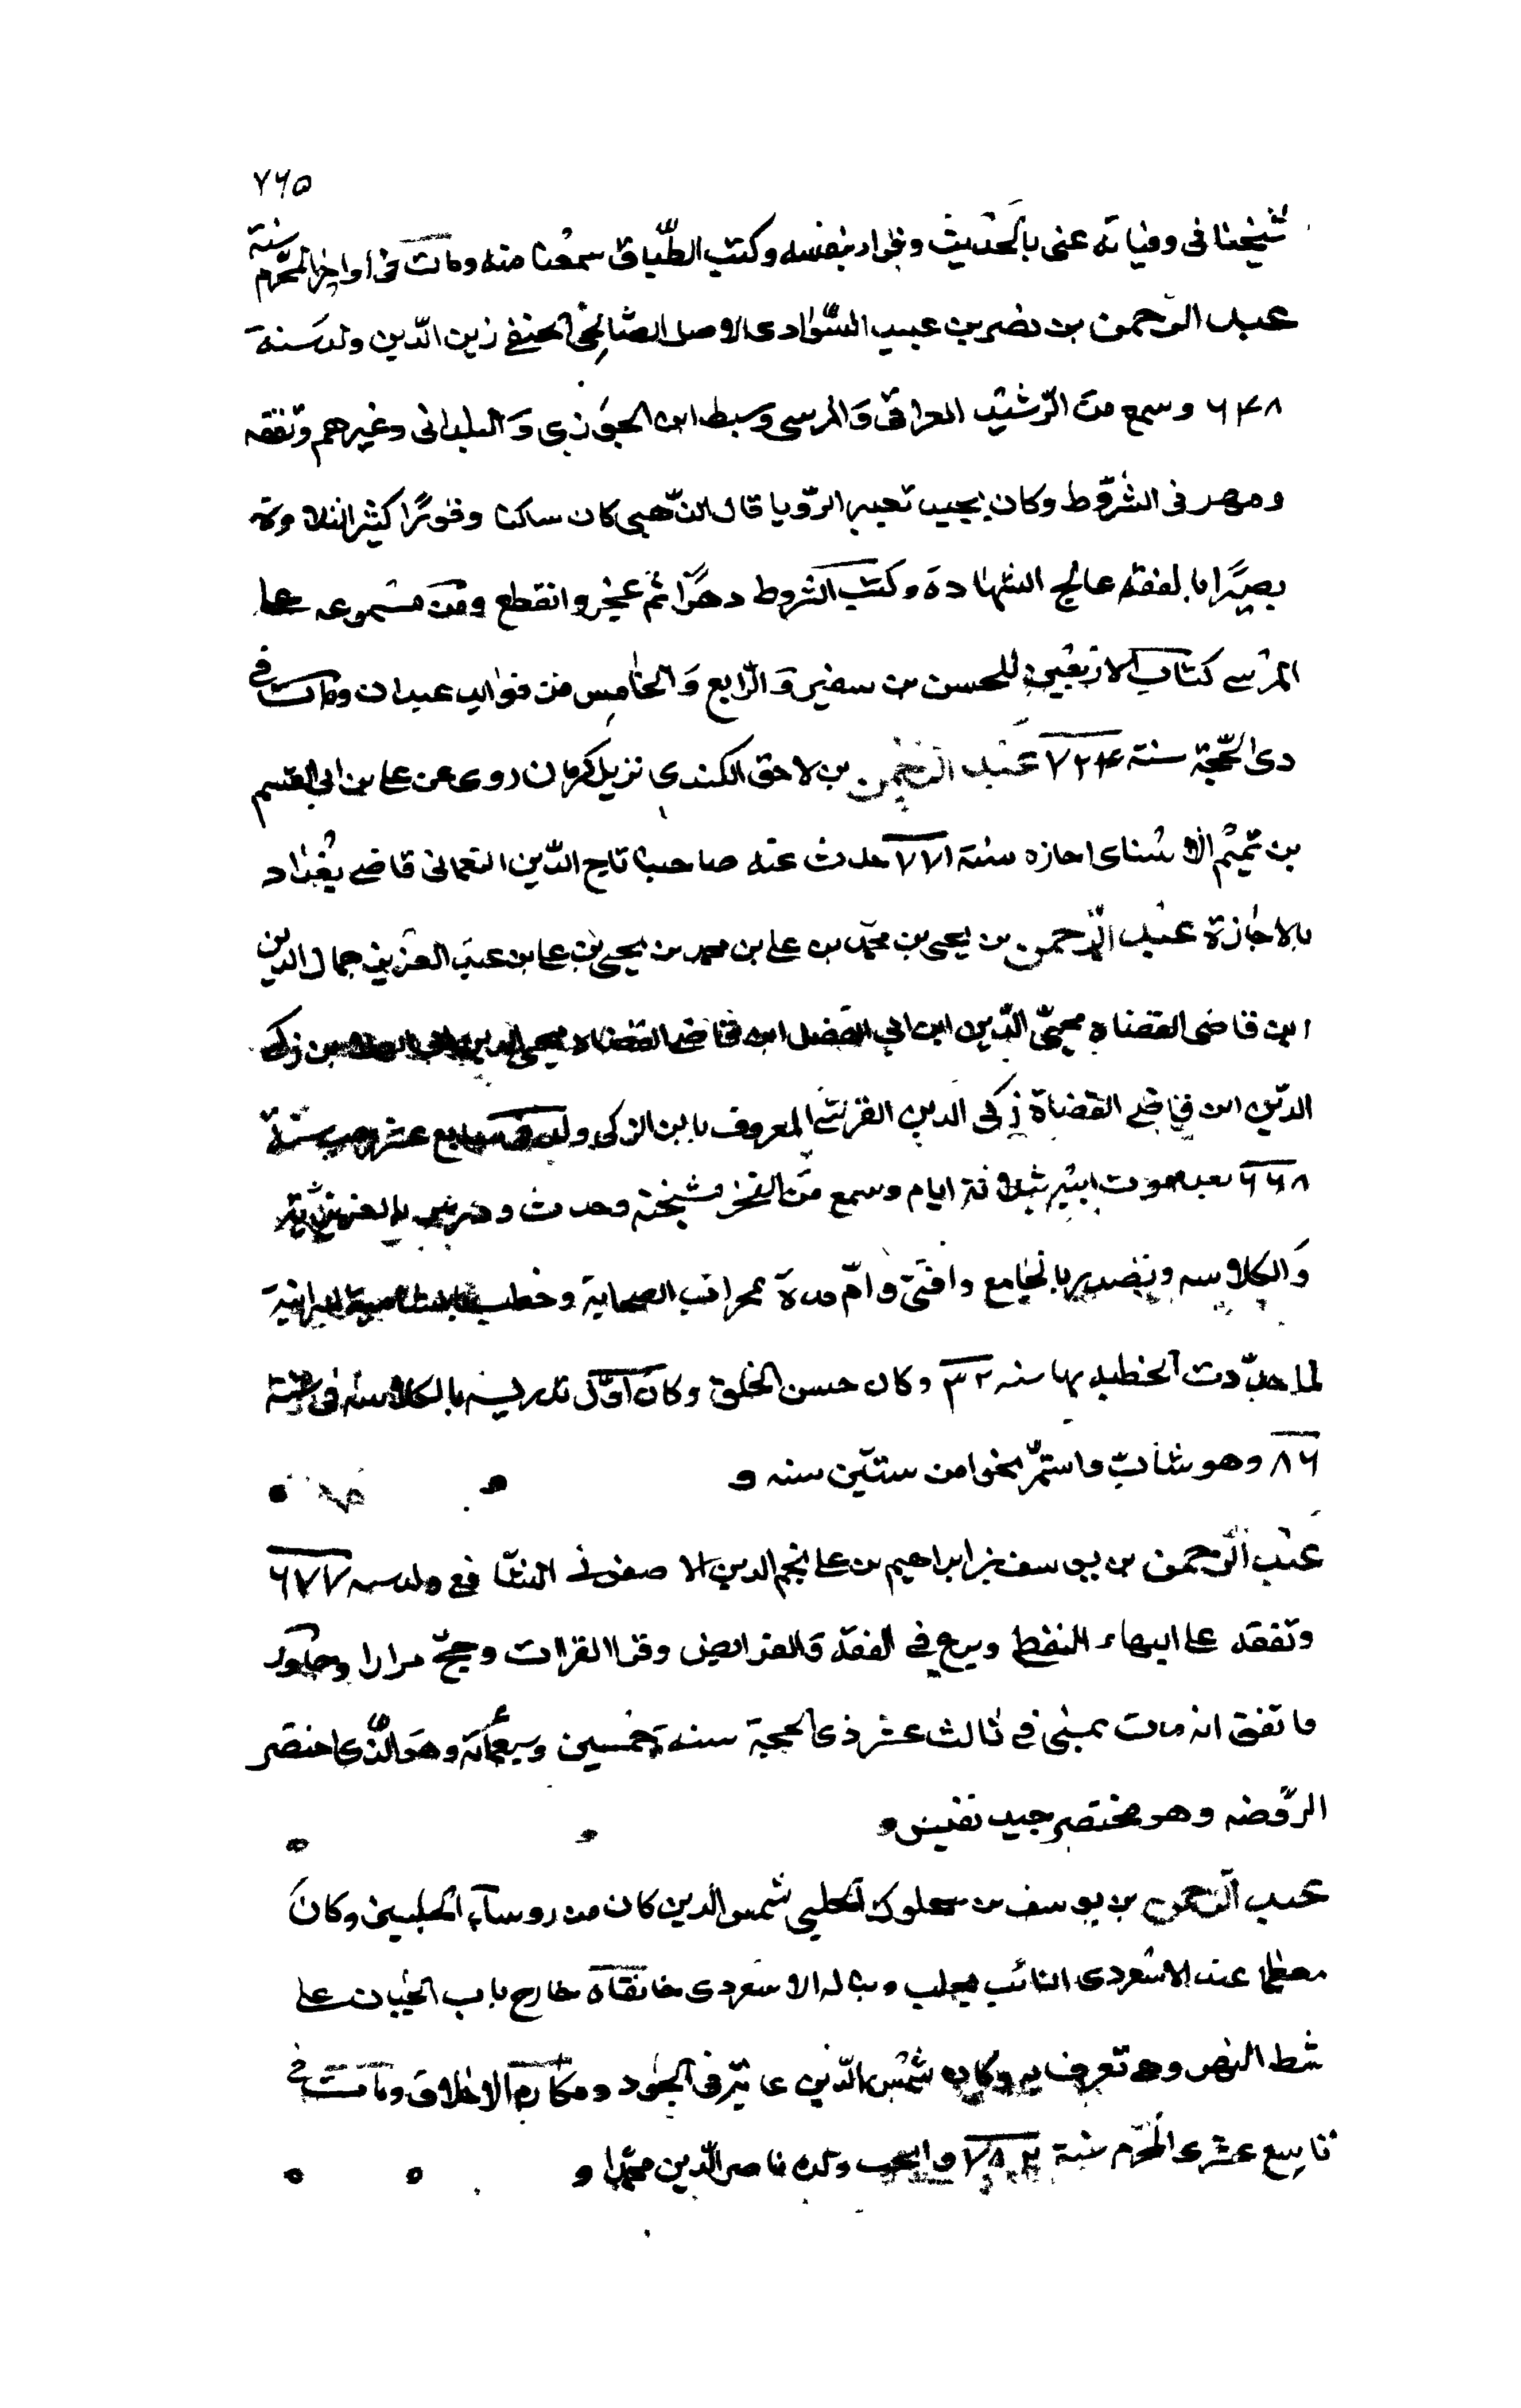 شيخنا فى وفياته عنى بالحديث وقراء بنفسه وكتب الطباق سمعنا منه ومات فى اواخر المحرّم سنة
٧٦٥
عبد الرحمن بن نصر بن عبيد السّوادى الاصل الصّالحى الحنفى زين الدّين ولد سنة
٦٤٨ وسمع من الرّشيد العراقى والمرسى وسبط ابن الجوزى والبلدانى وغيرهم وتفقه
ومهر فى الشّروط وكان يجيد تعبير الرّويا قال الذّهبى كان ساكنا وقورًا كثير التلاوة
بصيرًا بالفقه عالج الشهادة وكتب الشروط دهرًا ثم عجز وانقطع ومن مسموعه على
المرسى كتاب الاربعين للحسن بن سفين والرّابع والخامس من فوايد عبدان ومات فى
ذى الحجّة سنة ٧٢٤ عبد الرحمن بن لاحق الكندى نزيل كرمان روى عن على بن ابى القسم
بن تميم اجازه سنة ٧٧١ حدث عنه صاحبنا تاج الدّين النعمانى قاضى بغداد
بالاجازة عبد الرّحمن بن يحيى بن محمّد بن على بن محمد بن يحيى بن على بن عبد العزيز جمال الدين
ابن قاضى القضاة محيى الدّين ابن ابى الفضل ابن قاضى القضاة محيى الدين بن زكى
الدّين ابن قاضى القضاة زكى الدين القرشى المعروف بابن الزكى ولد فى سابع عشر رجب سنة
٦٦٨ بعد موت ابيه بثلاثة ايام وسمع من الفخر مشيخته وحدث ودرس بالعزيزية
والكلاسه وتصدر بالجامع وافتى وامّ مدة بمحراب الصحابة وخطب بالشامية البرانية
لما جدّدت الخطبه بها سنه ٣٢ وكان حسن الخلق وكان اوّل تدريسه بالكلاسه فى سنة
٨٦ وهو شابّ واستمرّ نحوا من ستّين سنه و
عبد الرحمن بن يوسف بن ابراهيم بن على نجم الدين الاصفونى الشّافعى ولد سنه ٦٧٧
وتفقه على البهاء القفطى وبرع فى الفقه والفرايض وقرا القراات وحجّ مرارا وجاور
فاتفق انه مات بمنى فى ثالث عشر ذى الحجة سنه خمسين وسبعمائة وهو الّذى اختصر
الرّوضه وهو مختصر جيد نفيس
عبد الرحمن بن يوسف بن سحلول الحلبى شمس الدين كان من روساء الحلبيين وكان
معظما عند الاسعردى النائب بحلب وبنا له الاسعردى خانقاه خارج باب الجنان على
شط النهر وهى تعرف به وكان شمس الدّين غاية فى الجود ومكارم الاخلاق ومات فى
تاسع عشرى المحرّم سنة ٧٨٢ وانجب ولده ناصر الدّين محمّدا و